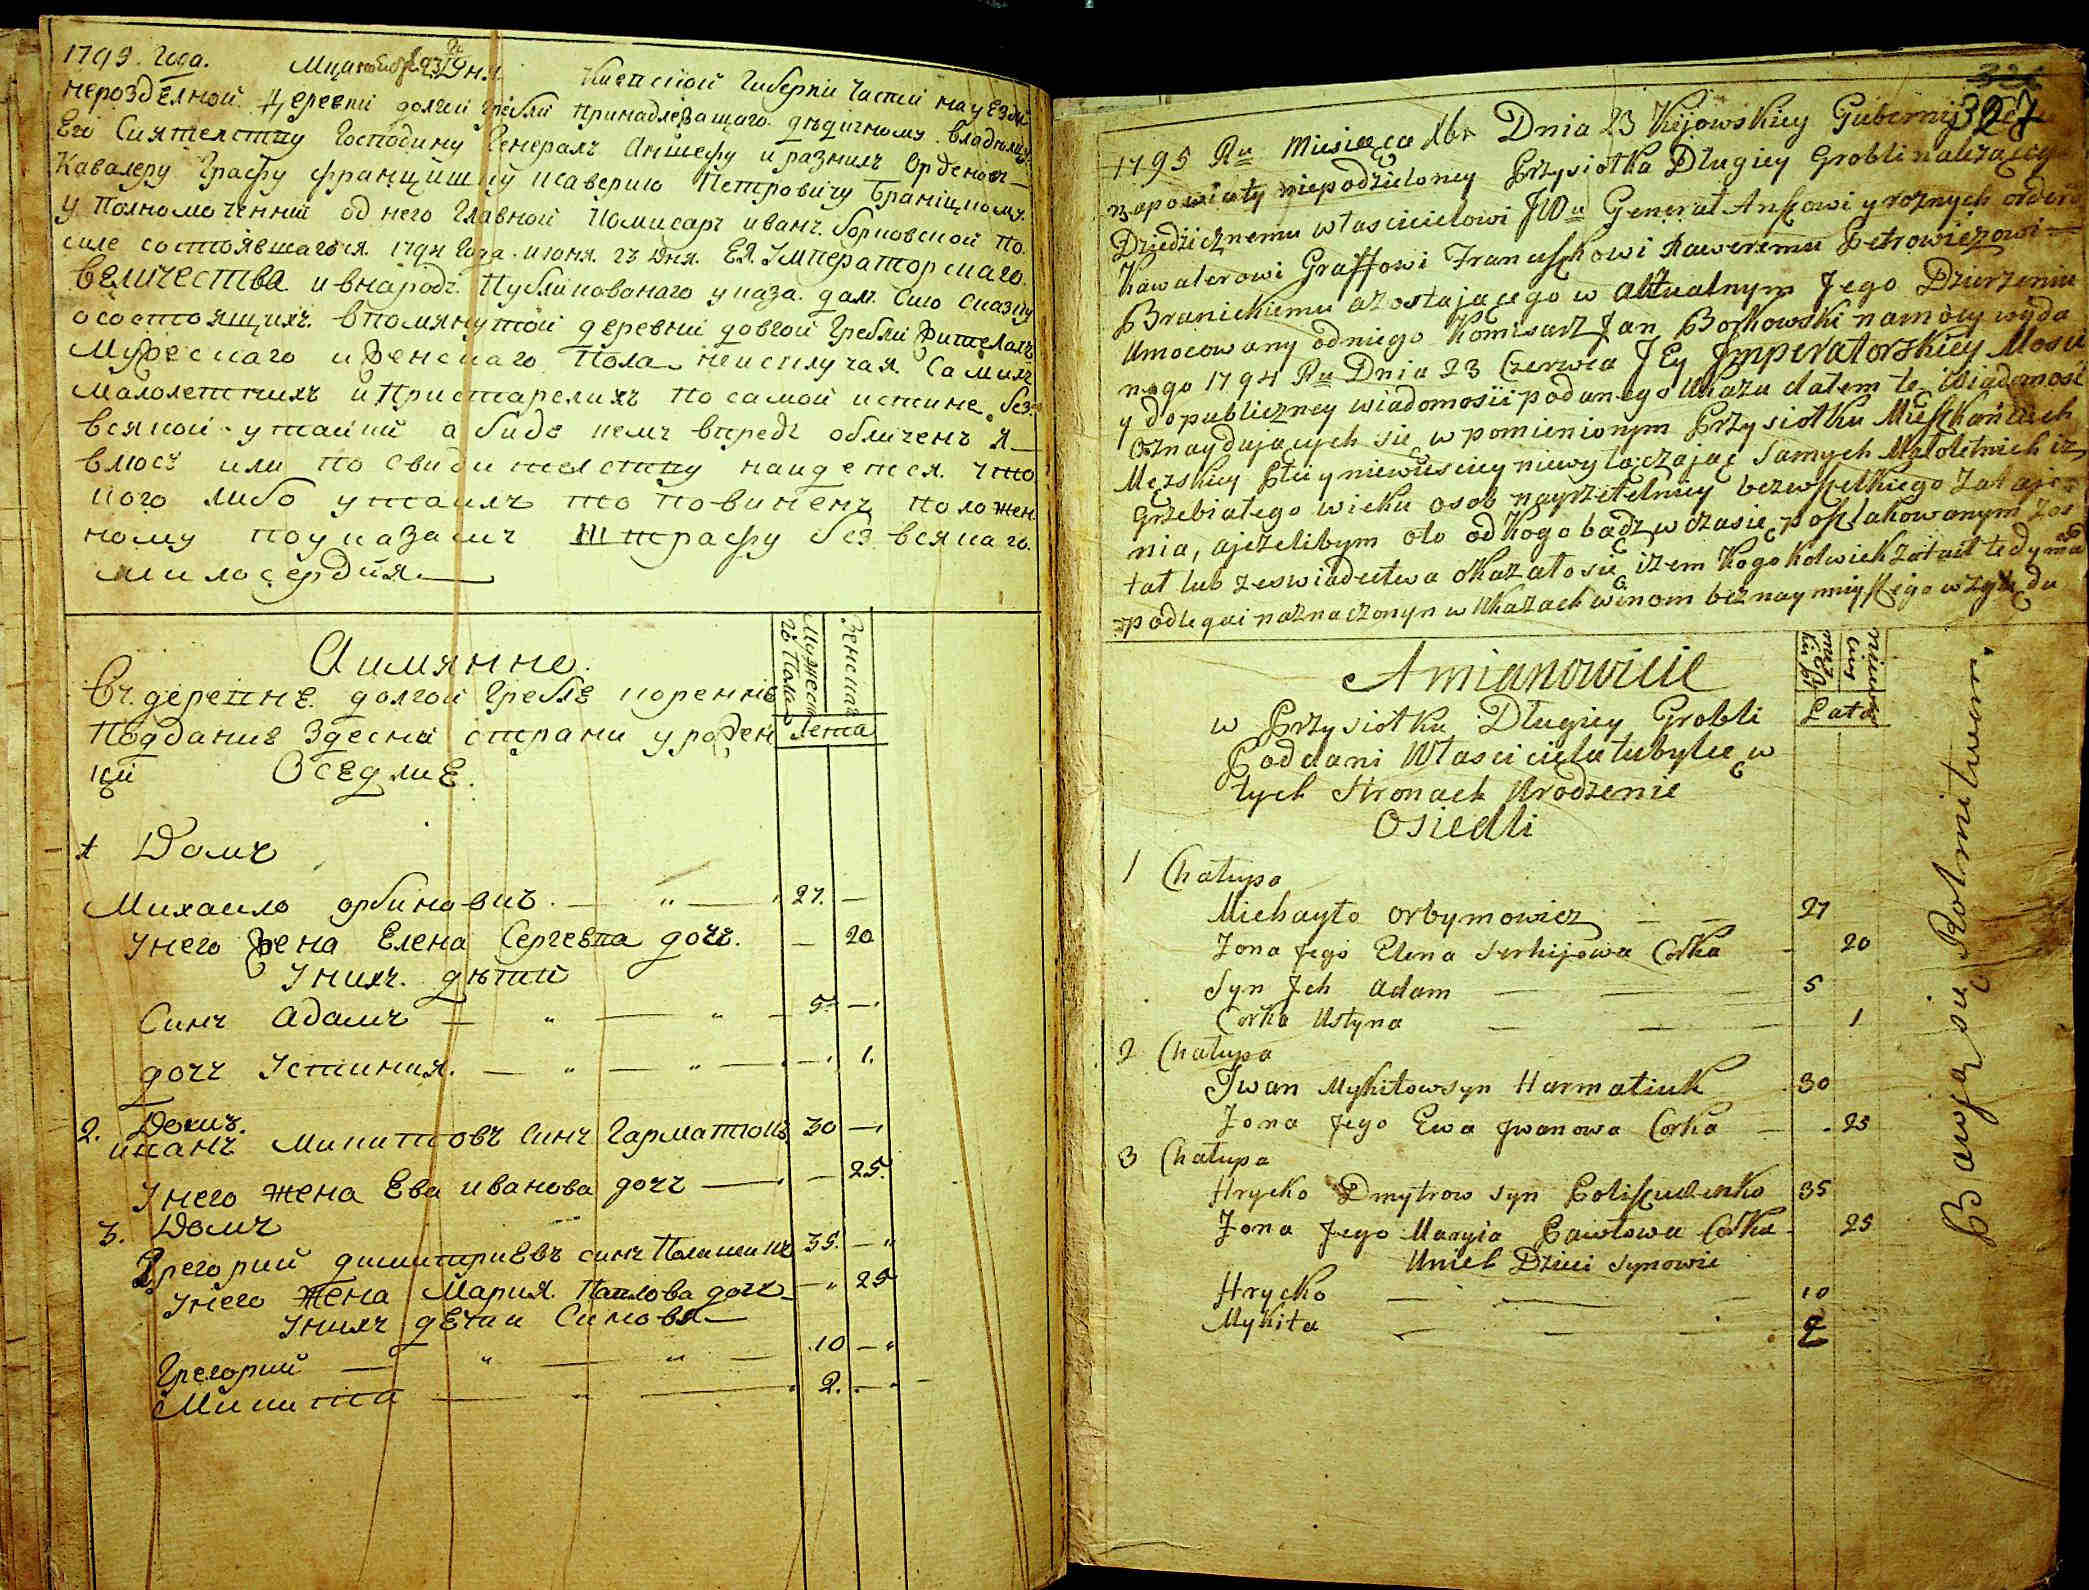 1795 Года. Мца 23 Дня Киевской Губернїи Части на уезди
нерозделной Деревни долгой гребли принадлежащаго дѣдичному владелцу
Его Сиятелству Господину Генералъ Аншефу и разнихъ Орденовъ
Кавалеру Графу францишку ксаверию Петровичу Браницкому
уполномоченний од него Главной Комисаръ иванъ Борковской по
силе состоявшагося 1794 Года июня 23 Дня Ея Императорскаго
величества и внародъ Публикованаго указа далъ Сию Сказку
осостоящихъ впомянутой деревни довгой Гребли жителахъ
Мужескаго и женскаго Пола неисключая Самихъ
малолетнихъ и Пристарелихъ по самой истине без
всякой утайки а буде кемъ впредъ обличенъ я
влюсъ или по свидителству найдется что
кого либо утаилъ то повиненъ положен
ному поуказамъ штрафу без всякаго
милосердия
Аимянно
Мужеска го Пола
Женска
Въ деревне долгой Гребле коренние
Поддание Здесной страни урожен
Лета
ций Оседлие
1 Домъ
Михаило орбиновичъ 27. —
Унего жена Елена Сергевна дочъ. — 20
Унихъ дѣтии
Синъ Адамъ — „ — „ — 5. —
дочъ Устиния. — „ — „ — 1.
2. Домъ.
иванъ Микитовъ Синъ Гарматюкъ 30 —
Унего жена Ева иванова дочъ — — 25.
3. Домъ
Грегорий димитриевъ синъ 35. — „
Унего жена Мария Павлова дочъ — „ 25
Унихъ дѣти Синовя —
Грегорий — „ — „ — 10 — „
Микита — „ — 2. — „
327
1795 Ru Miesięca Xbr Dnia 23 Kijowskiey Gubernij
napowiaty niepodzieloney Przysiołka Długiey Grobli należącego
Dziedzicznemu własicielowi JWu Generał Anszowi y roznych orderow
Kawalerowi Graffowi Franciszkowi Xaweremu Petrowiczowi
Branickiemu azostającego w aktualnym Jego Dzierzeniu
Umocowany odniego Komisarz Jan Borkowski namocy wyda
nego 1794 Ru Dnia 23 Czerwca JEy Imperatorskiey Mosci
y dopubliczney wiadomosii podanego Ukazu dałem tę Wiadomosć
Oznaydujących się w pomienionym Przysiołku Mieszkańcach
Męzskiey Płci y niewiesciey niewyłączając Samych Małoletnich iz
Grzebiałego wieku osob nayrzetelniey bezewszelkiego Zataie
nia, ajeżelibym oto odkogo bądz w czasie poszlakowanym Zos
tał lub zeswiadectwa okazałosię iżem Kogokolwiek zataił tedy mam
podlegac naznaczonyn w Ukazach winom beznaymnieyszego względu
Amianowicie
męz kiey
niewies ciey
Lata
w Przysiołku Długiey Grobli
Poddani Własciciela tubylcę w
tych Stronach Urodzenie
Osiedli
1 Chałupa
Michayło Orbymowicz — — 27
Zona Jego Elena Serhijowa Corka — 20
Syn Jch Adam — — 5
Corka Ustyna — — — 1
2 Chałupa
Jwan Mykitowsyn Harmatiuk 30
Zona Jego Ewa Jwanowa Corka — 25
3 Chałupa
Hrycko Dmytrow syn Poliszczuczenko 35
Zona Jego Maryia Pawłowa Corka 25
Unich Dzieci Synowie
Hrycko — — — 10
Mykita — — — 2
Bawią się Rolnictwem.